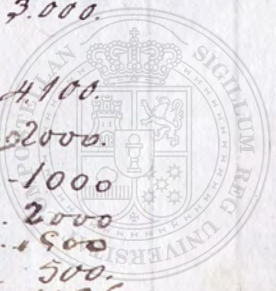 3.000.
4.100.
2000.
-1000
2000
500
500.
SIGILLUM REG UNIVERSIT